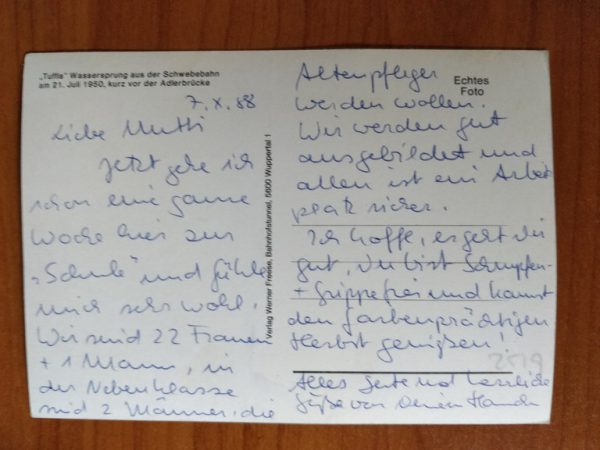 „Tuffis" Wassersprung aus der Schwebebahn
am 21. Juli 1950, kurz vor der Adlerbrücke
7. X. 88
Liebe Mutti
Jetzt gehe ich
schon eine ganze
Woche hier zur
„Schule" und fühle
mich sehr wohl.
Wir sind 22 Frauen
+ 1 Mann, in
der Nebenklasse
sind 2 Männer, die
Verlag Werner Freese, Bahnhofstunnel, 5600 Wuppertal 1
Echtes
Foto
Altenpfleger
werden wollen.
Wir werden gut
ausgebildet und
allen ist ein Arbeits
platz sicher.
Ich hoffe, es geht Dir
gut, Du bist Schnupfen-
+ Grippefrei und kannst
den farbenprächtigen
Herbst genießen!
2519
Alles Gute und
Grüße von Deiner